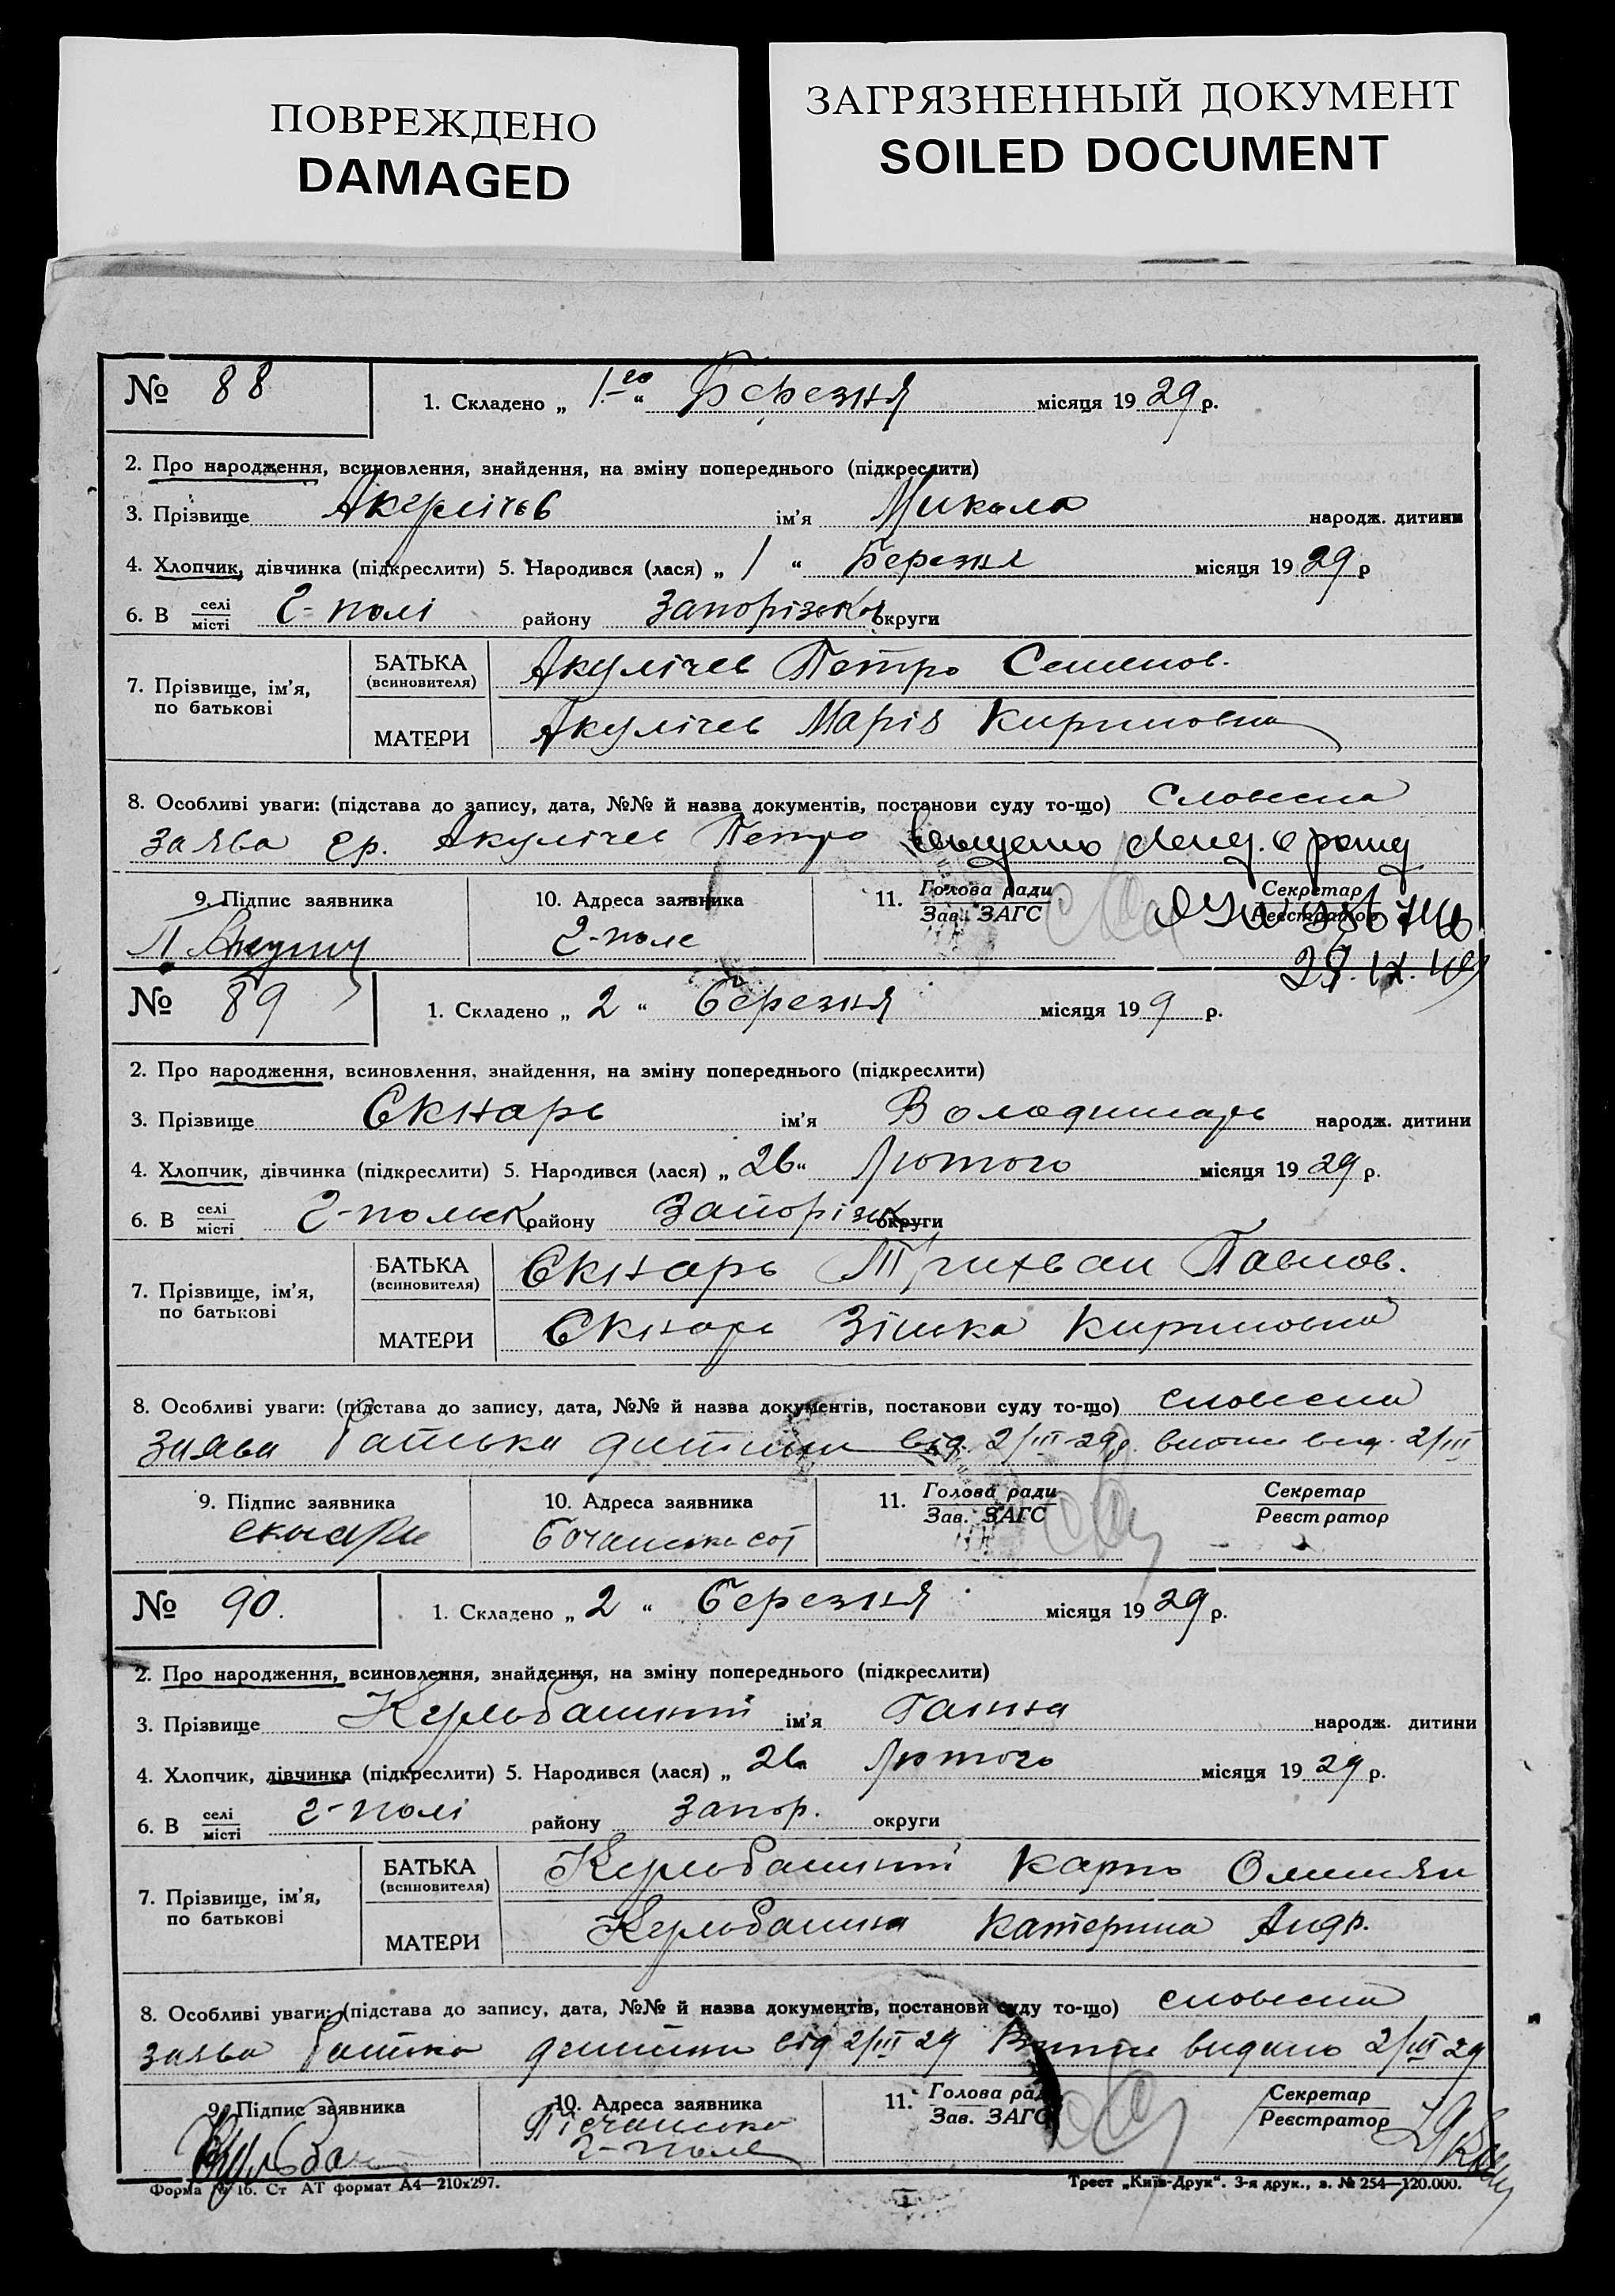 ПОВРЕЖДЕНО
DAMAGED
ЗАГРЯЗНЕННЫЙ ДОКУМЕНТ
SOILED DOCUMENT
№ 88
1. Складено „ 1-го “ Березня місяця 1929 р.
2. Про народження, всиновлення, знайдення, на зміну попереднього (підкреслити)
3. Прізвище Акулічев ім'я Микола народж. дитини
4. Хлопчик, дівчинка (підкреслити) 5. Народився (лася) „ 1 “ Березня місяця 1929 р
6. В селі місті Г-полі району Запорізької округи
7. Прізвище, ім'я, по батькові
БАТЬКА (всиновителя) Акулічев Петро Семенов.
МАТЕРИ Акулічев Марія Кириловна
8. Особливі уваги: (підстава до запису, дата, №№ й назва документів, постанови суду то-що) Словесна
заява гр. Акулічев Петро
9. Підпис заявника
10. Адреса заявника
11. Голова ради Зав. ЗАГС
Секретар Реєстратор
Г-поле
28.IX.49
№ 89
1. Складено „ 2 “ Березня місяця 19 9 р.
2. Про народження, всиновлення, знайдення, на зміну попереднього (підкреслити)
3. Прізвище Скнарь ім'я Володимарь народж. дитини
4. Хлопчик, дівчинка (підкреслити) 5. Народився (лася) „ 26 “ Лютого місяця 1929 р.
6. В селі місті Г-польск району Запорізк округи
7. Прізвище, ім'я, по батькові
БАТЬКА (всиновителя) Скнарь Трихван Павлов.
МАТЕРИ Скнарь Зінька Кириловна
8. Особливі уваги: (підстава до запису, дата, №№ й назва документів, постанови суду то-що) словесна
заява батька дитини від 2/III-29р. витяг вид. 2/III
9. Підпис заявника
10. Адреса заявника
11. Голова ради Зав. ЗАГС
Секретар Реєстратор
скнарь
№ 90.
1. Складено „ 2 “ Березня місяця 1929 р.
2. Про народження, всиновлення, знайдення, на зміну попереднього (підкреслити)
3. Прізвище ім'я Ганна народж. дитини
4. Хлопчик, дівчинка (підкреслити) 5. Народився (лася) „ 26 Лютого місяця 1929 р.
6. В селі місті Г-полі району Запор. округи
7. Прізвище, ім'я, по батькові
БАТЬКА (всиновителя) Карпо
МАТЕРИ Катерина Андр.
8. Особливі уваги: (підстава до запису, дата, №№ й назва документів, постанови суду то-що) словесна
заява батька дитини від 2/III 29 видано 2/III 29
9. Підпис заявника
10. Адреса заявника
11. Голова ради Зав. ЗАГС
Секретар Реєстратор
Г-поле
Форма № 16. Ст АТ формат А4—210х297.
Трест „Київ-Друк“. 3-я друк., з. № 254—120.000.